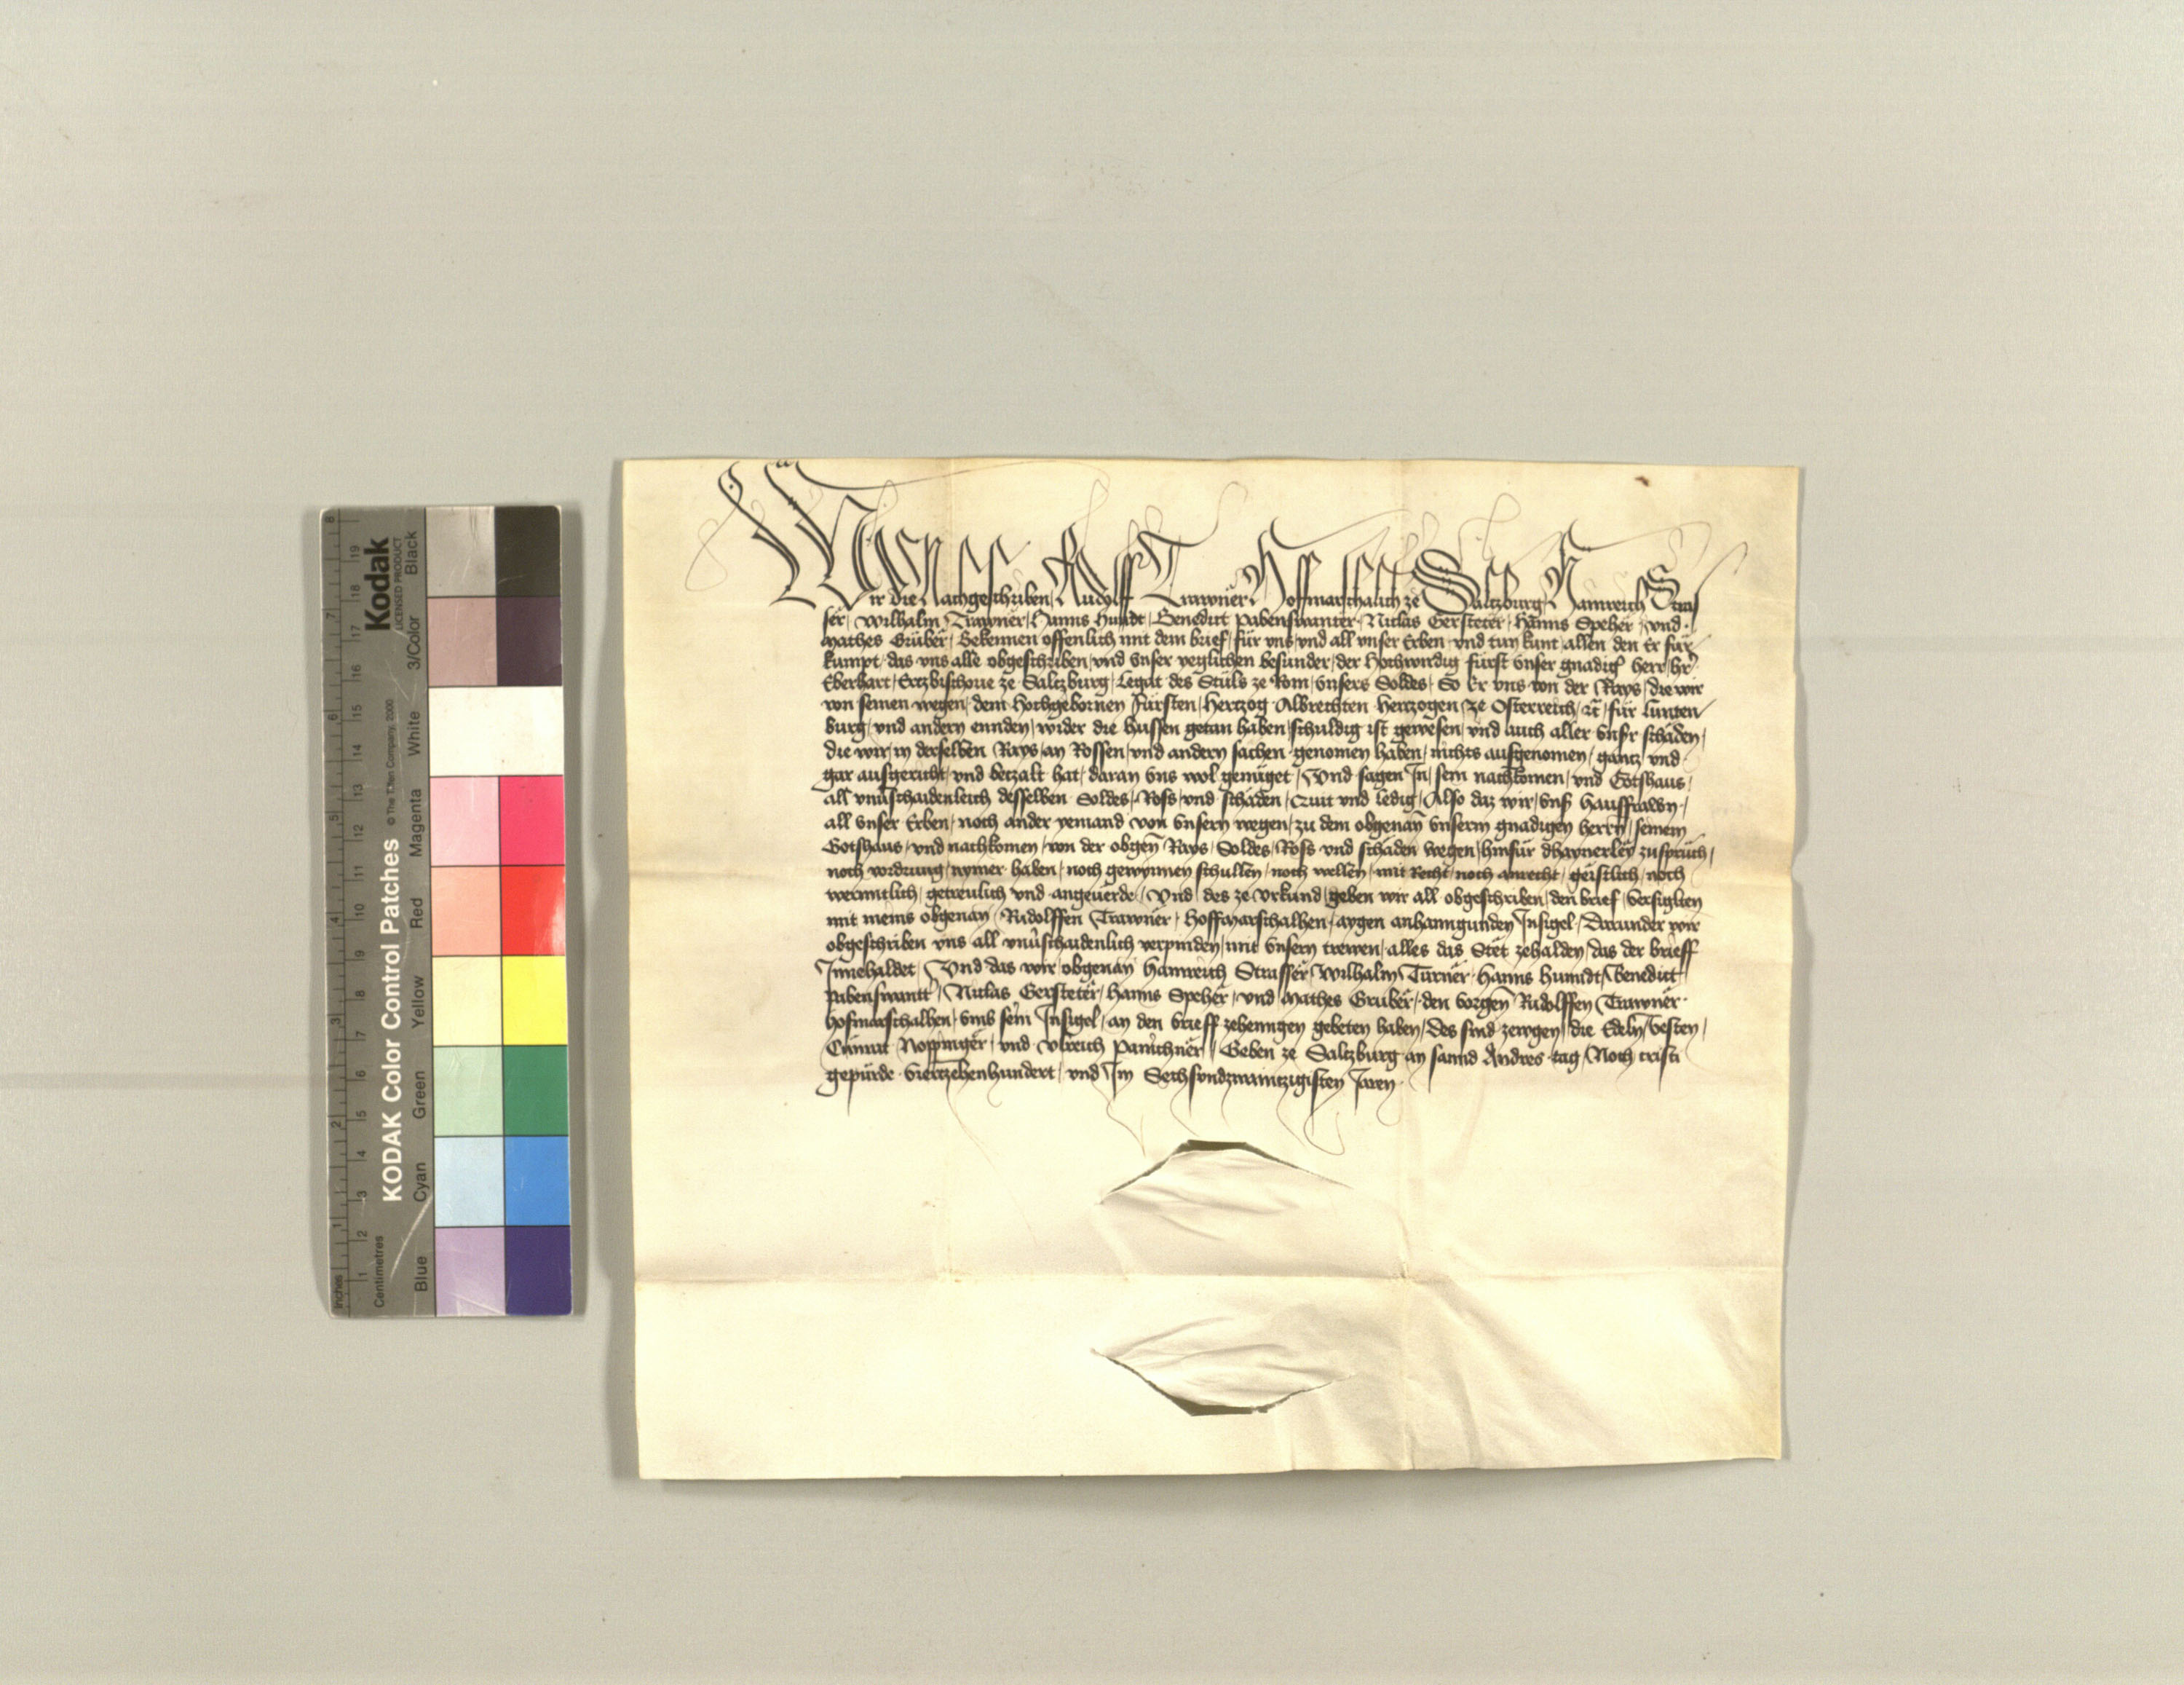 Wir die Nachgeschriben Rudolff Trawner Hoffmarschalich ze Saltzburg Hainreich Stras
ser, Wilhalm Trawner, Hanns Hundt, Benedict pabenswanter, Niclas Gersteter, Hanns Speher, vnd
Mathes Gruber, Bekennen offenlich mit dem brief, für vns, vnd all vnser Erben, vnd tun kunt, allen den Er für
kumpt, das vns alle obgeschriben, vnd vnser yeglichen besunder, der Hochwirdig fürst vnser gnadig herr, hr
Eberhart, Ertzbischoue ze Saltzburg, Legat des Stüls ze Rom, vnsers Soldes, So Er vns von der Rays, die wir
von seinen wegen, dem Hochgebornen Fürsten, Hertzog Albrechten Hertzogen ze Osterreich, &c, für Lunten
burg, vnd andern ennden, wider die hussen getan haben, schuldig ist gewesen, vnd auch aller vnsr schäden,
die wir in derselben Rays, an Rossen, vnd andern sachen genomen haben, nichts ausgenomen, gantz vnd
gar ausgericht, vnd betzalt hat, daran vns wol genüget, Vnd sagen In, sein nachkomen, vnd Gotshaus,
all vnuschaidenleich desselben Soldes, Ross, vnd schäden, Quit vnd ledig, Also daz wir, vnsr hausfrawn,
all vnser Erben, noch ander yemand von vnsern wegen, zu dem obgenan vnserm gnadigen herrn, seinem
Gotshaus, vnd nachkomen, von der obgen Rays, Soldes, Ross vnd schäden wegen, hinfür dhaynerley zuspruch,
noch vordrung, nymer haben, noch gewynnen schullen, noch wellen, mit Recht, noch anrecht, geistlich, noch
werntlich, getreulich vnd angeuerde, Vnd des ze vrkund, geben wir all obgeschriben, den brief, Versiglten
mit meins obgenan Rudolffen Trawner, Hoffmarschalhen, aygen anhanngunden Insigel, Darunder wir
obgeschriben vns all vnuschaidenlich verpinden, mit vnsern trewen, alles das Stet zehalden, das der brieff
Innehaldet, Vnd das wir obgenan Hainreich Strasser, Wilhalm Turner, Hanns Hundt, Benedict
pabenswantr, Niclas Gersteter, Hanns Speher, vnd Mathes Gruber, den vorgen Rudolffen Trawner
hofmarschalhen, vmb sein Insigel, an den brieff zehenngen gebeten haben, Des sind zewgen, die Edeln, Vesten,
Chunrat Noppinger, vnd Vlreich Panichner, Geben ze Saltzburg an sannd Andres tag, Nach cristi
gepürde Viertzehenhundert, vnd Im Sechsvndzwaintzigisten Jaren
Kodak
LICENSED PRODUCT
KODAK Color Control Patches
© The Tiffen Company, 2000
Inches
Centimetres
Blue
Cyan
Green
Yellow
Red
Magenta
White
3/Color
Black